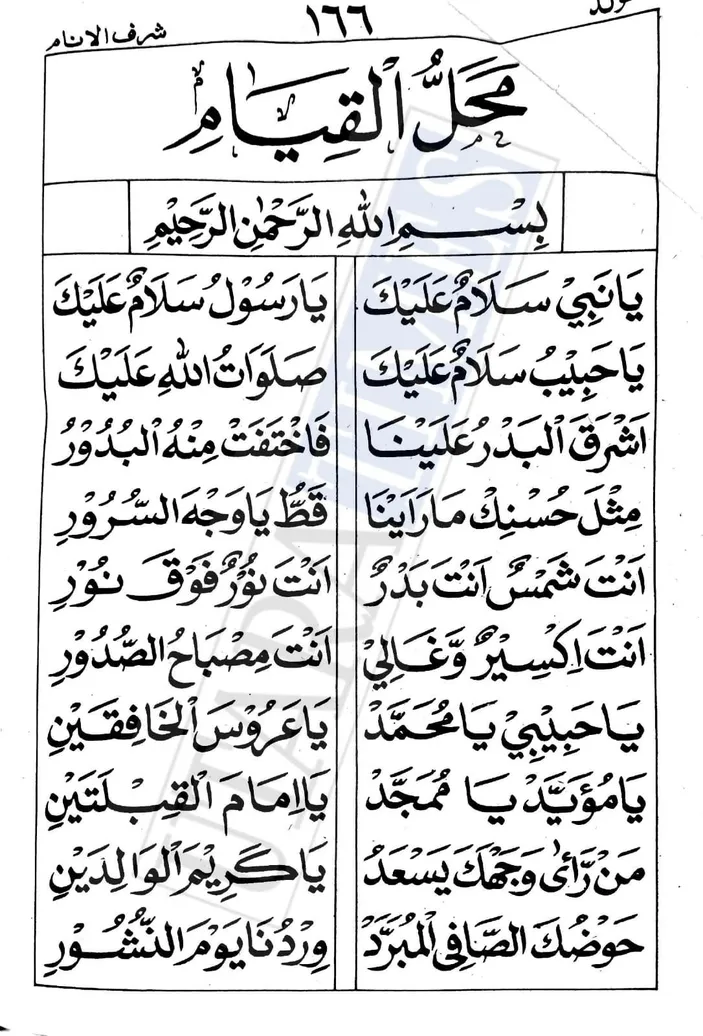 مولد
١٦٦
شرف الانام
مَحَلُّ الْقِيَامِ
بِسْمِ اللهِ الرَّحْمٰنِ الرَّحِيْمِ
يَا نَبِيْ سَلَامٌ عَلَيْكَ يَا رَسُوْلْ سَلَامٌ عَلَيْكَ
يَا حَبِيْبُ سَلَامٌ عَلَيْكَ صَلَوَاتُ اللهِ عَلَيْكَ
اَشْرَقَ الْبَدْرُ عَلَيْنَا فَاخْتَفَتْ مِنْهُ الْبُدُوْرُ
مِثْلَ حُسْنِكْ مَا رَاَيْنَا قَطُّ يَا وَجْهَ السُّرُوْرِ
اَنْتَ شَمْسٌ اَنْتَ بَدْرٌ اَنْتَ نُوْرٌ فَوْقَ نُوْرِ
اَنْتَ اِكْسِيْرٌ وَّغَالِيْ اَنْتَ مِصْبَاحُ الصُّدُوْرِ
يَا حَبِيْبِيْ يَا مُحَمَّدْ يَا عَرُوْسَ الْخَافِقَيْنِ
يَا مُؤَيَّدْ يَا مُمَجَّدْ يَا اِمَامَ الْقِبْلَتَيْنِ
مَنْ رَّأٰى وَجْهَكَ يَسْعَدُ يَا كَرِيْمَ الْوَالِدَيْنِ
حَوْضُكَ الصَّافِى الْمُبَرَّدْ وِرْدُنَا يَوْمَ النُّشُوْرِ
UTARA TIMES